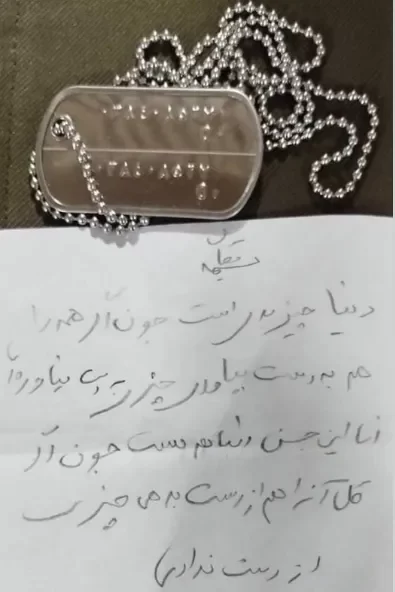 بسمه تعالی
دنیا چیز بدی است چون اگر همه را
هم به دست بیاوری چیزی به دست نیاورده‌ای
اما این حسن دنیا هم هست چون اگر
کل آن را هم از دست بدهی چیزی
از دست نداده‌ای